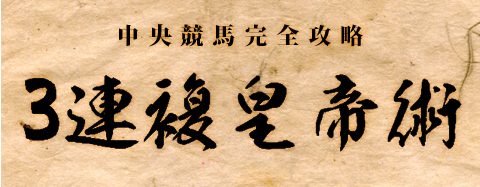 中央競馬完全攻略
3連複皇帝術